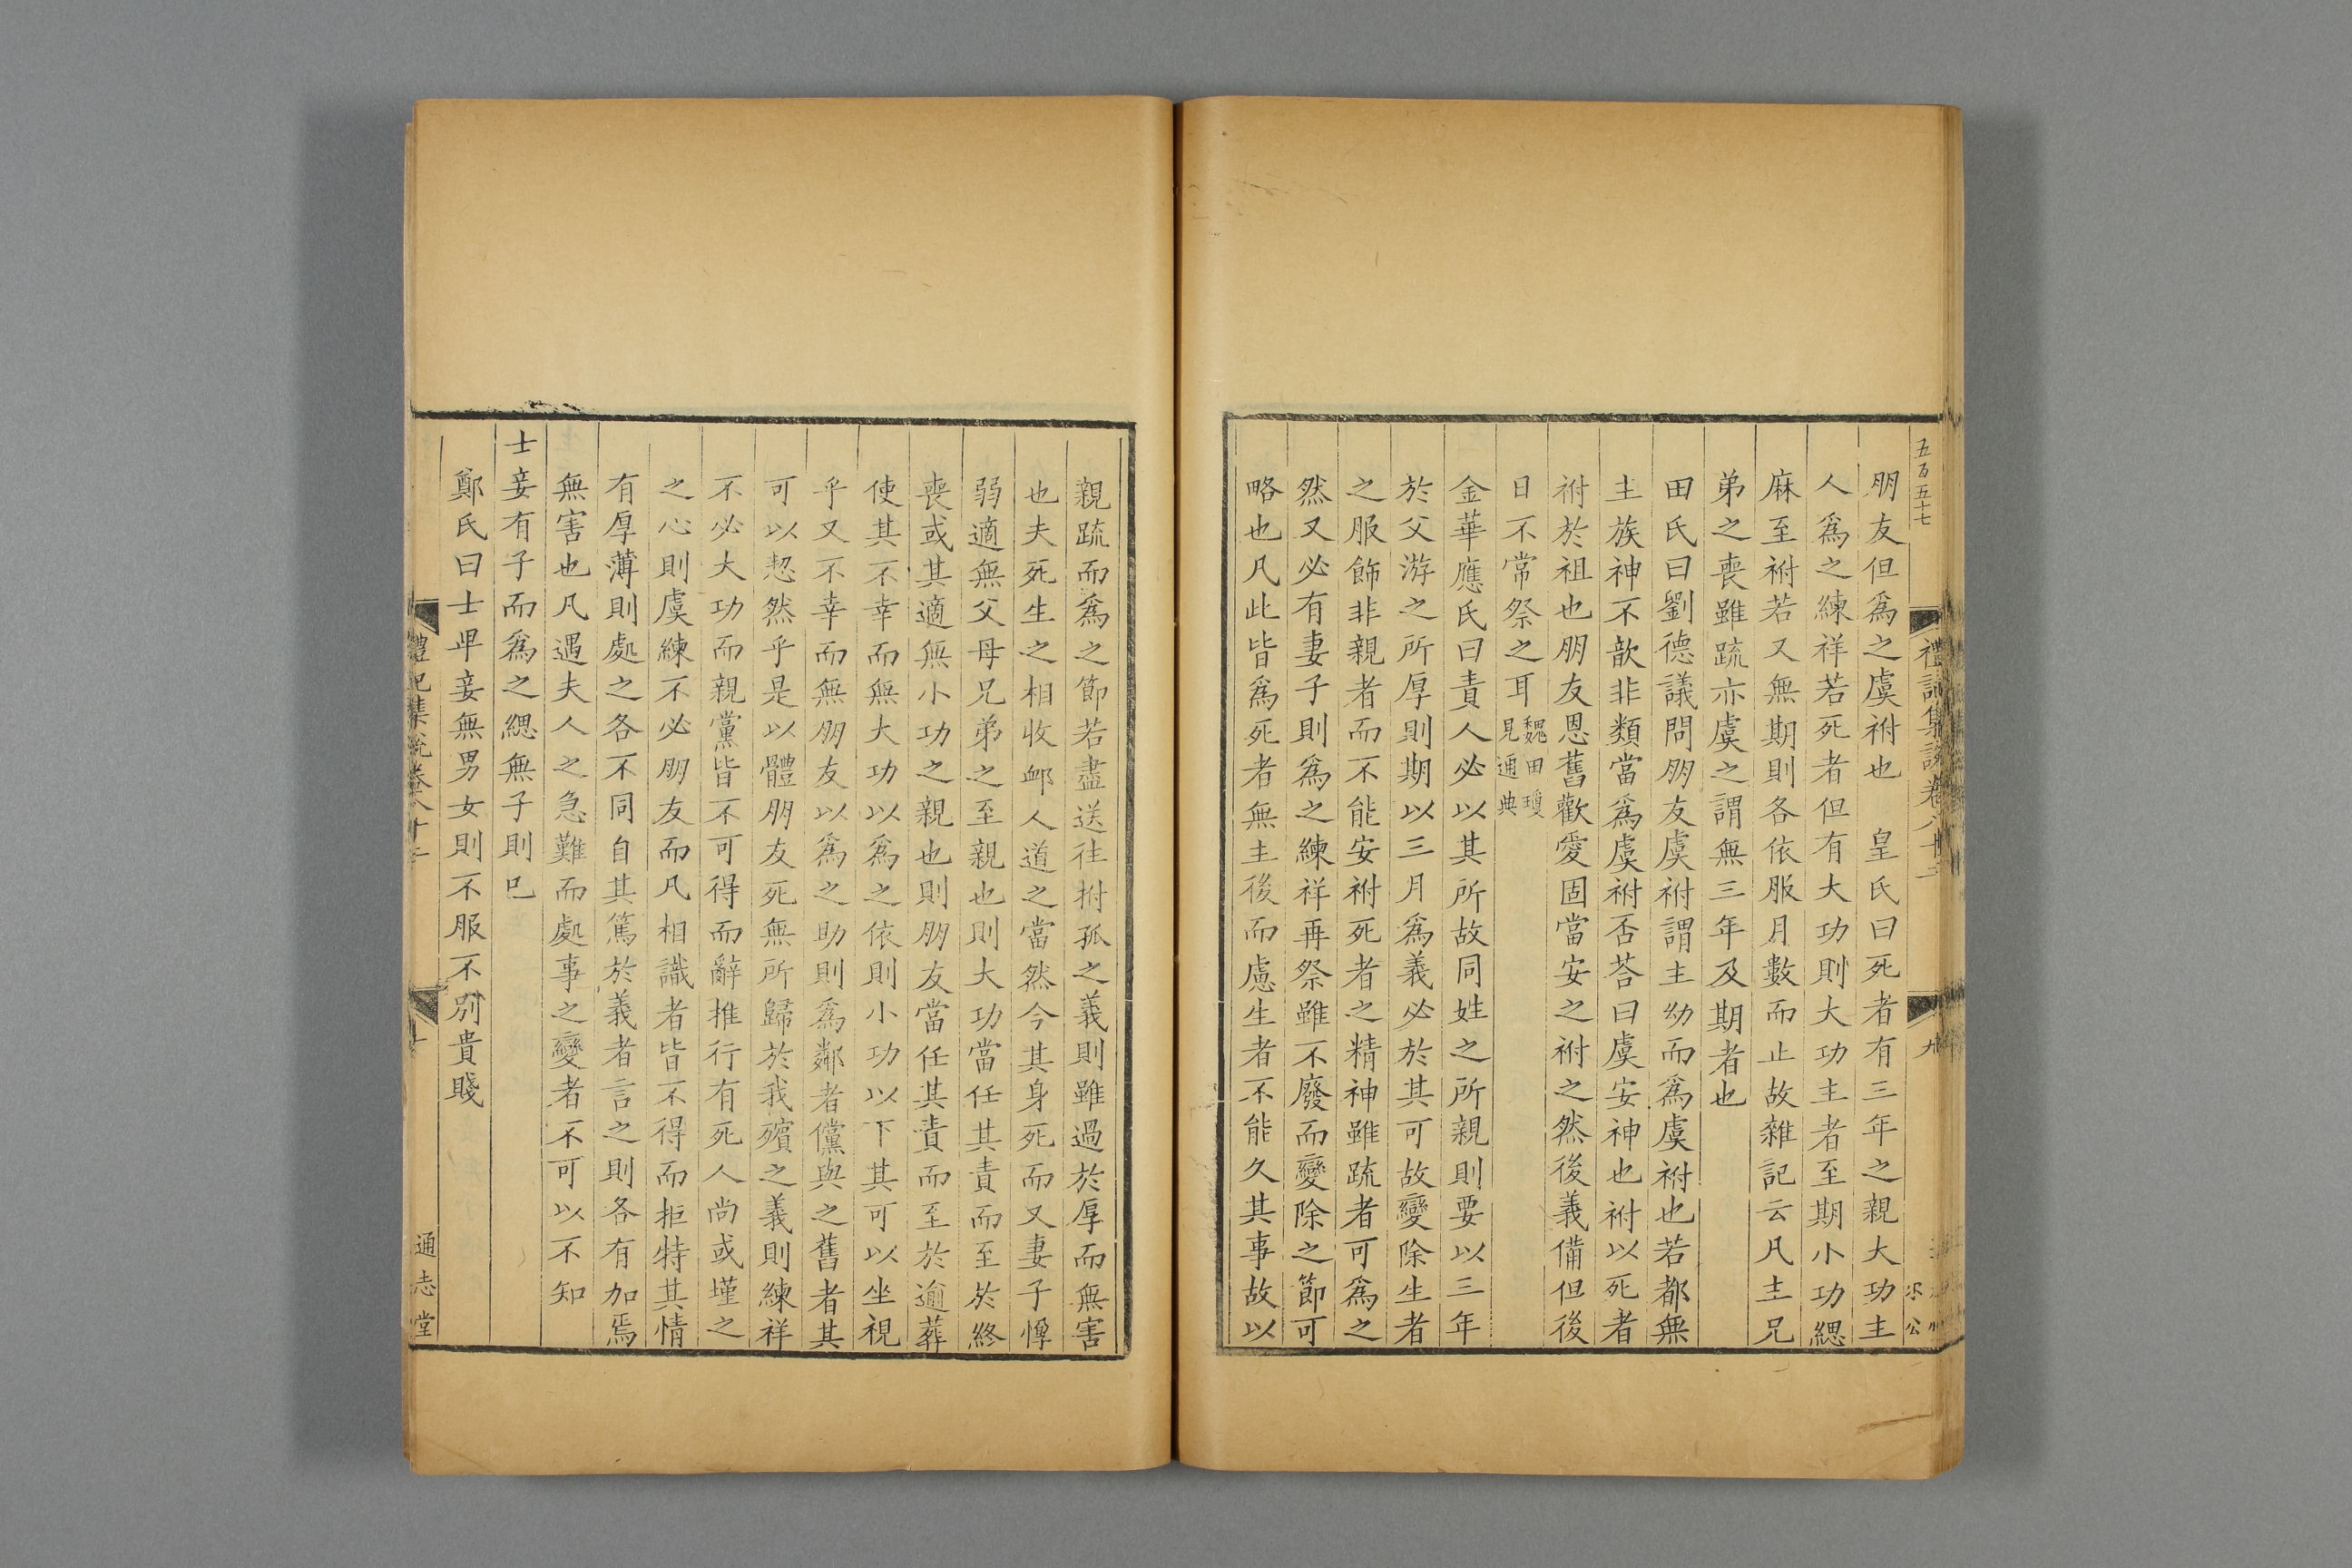 五百五十七
禮記集說卷八十三
九
朋友但爲之虞祔也　皇氏曰死者有三年之親大功主
人爲之練祥若死者但有大功則大功主者至期小功緦
麻至祔若又無期則各依服月數而止故雜記云凡主兄
弟之喪雖疏亦虞之謂無三年及期者也
田氏曰劉德議問朋友虞祔謂主幼而爲虞祔也若都無
主族神不歆非類當爲虞祔否荅曰虞安神也祔以死者
祔於祖也朋友恩舊歡愛固當安之祔之然後義備但後
日不常祭之耳魏田瓊見通典
金華應氏曰責人必以其所故同姓之所親則要以三年
於父游之所厚則期以三月爲義必於其可故變除生者
之服飾非親者而不能安祔死者之精神雖疏者可爲之
然又必有妻子則爲之練祥再祭雖不廢而變除之節可
略也凡此皆爲死者無主後而慮生者不能久其事故以
親疏而爲之節若盡送往拊孤之義則雖過於厚而無害
也夫死生之相收卹人道之當然今其身死而又妻子惸
弱適無父母兄弟之至親也則大功當任其責而至於終
喪或其適無小功之親也則朋友當任其責而至於逾葬
使其不幸而無大功以爲之依則小功以下其可以坐視
乎又不幸而無朋友以爲之助則爲鄰者儻與之舊者其
可以恝然乎是以體朋友死無所歸於我殯之義則練祥
不必大功而親黨皆不可得而辭推行有死人尚或墐之
之心則虞練不必朋友而凡相識者皆不得而拒特其情
有厚薄則處之各不同自其篤於義者言之則各有加焉
無害也凡遇夫人之急難而處事之變者不可以不知
士妾有子而爲之緦無子則已
鄭氏曰士卑妾無男女則不服不別貴賤
禮記集說卷八十三
十
通志堂